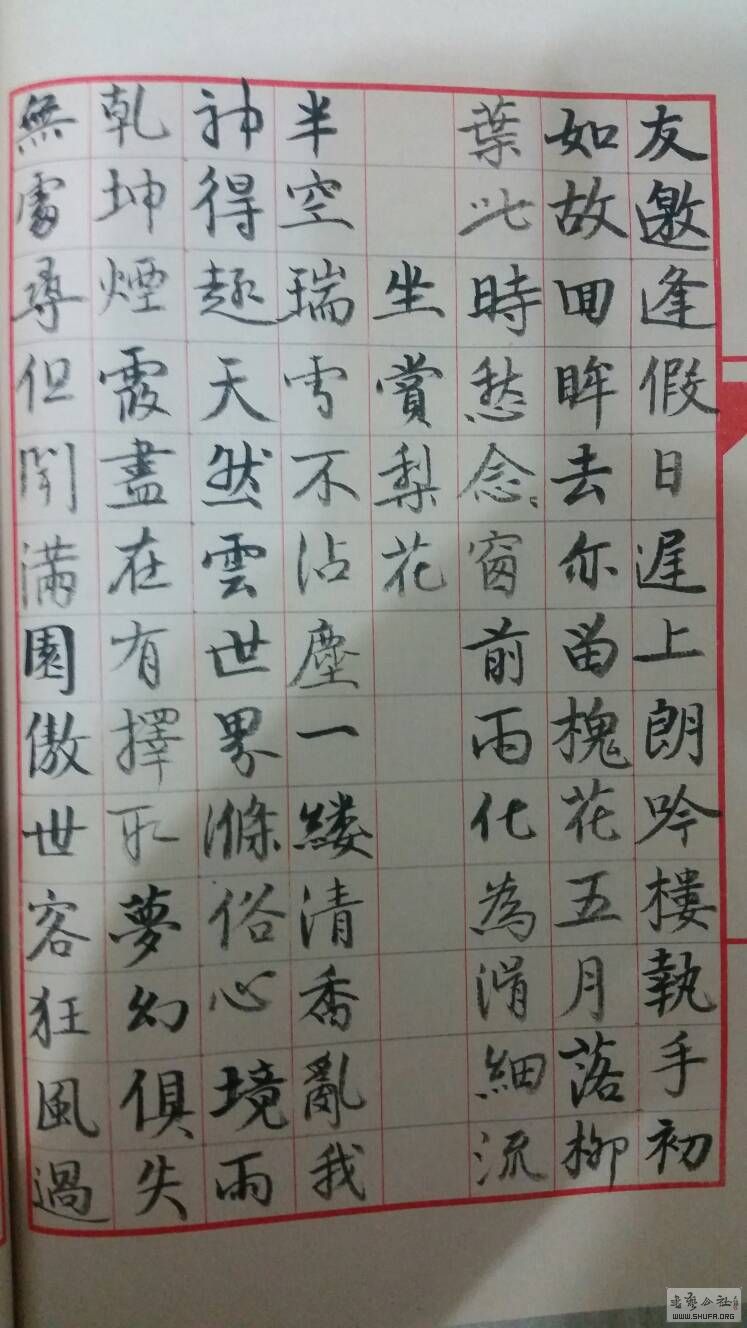 友邀逢假日遲上朗吟樓執手初
如故回眸去尔留槐花五月落柳
葉此時愁念念窗前雨化為涓細流
坐賞梨花
半空瑞雪不沾塵一縷清香亂我
神得趣天然雲世界滌俗心境雨
乾坤煙霞盡在有擇取夢幻俱失
無處尋但聞滿園傲世客狂風過
WWW.SHUFA.ORG